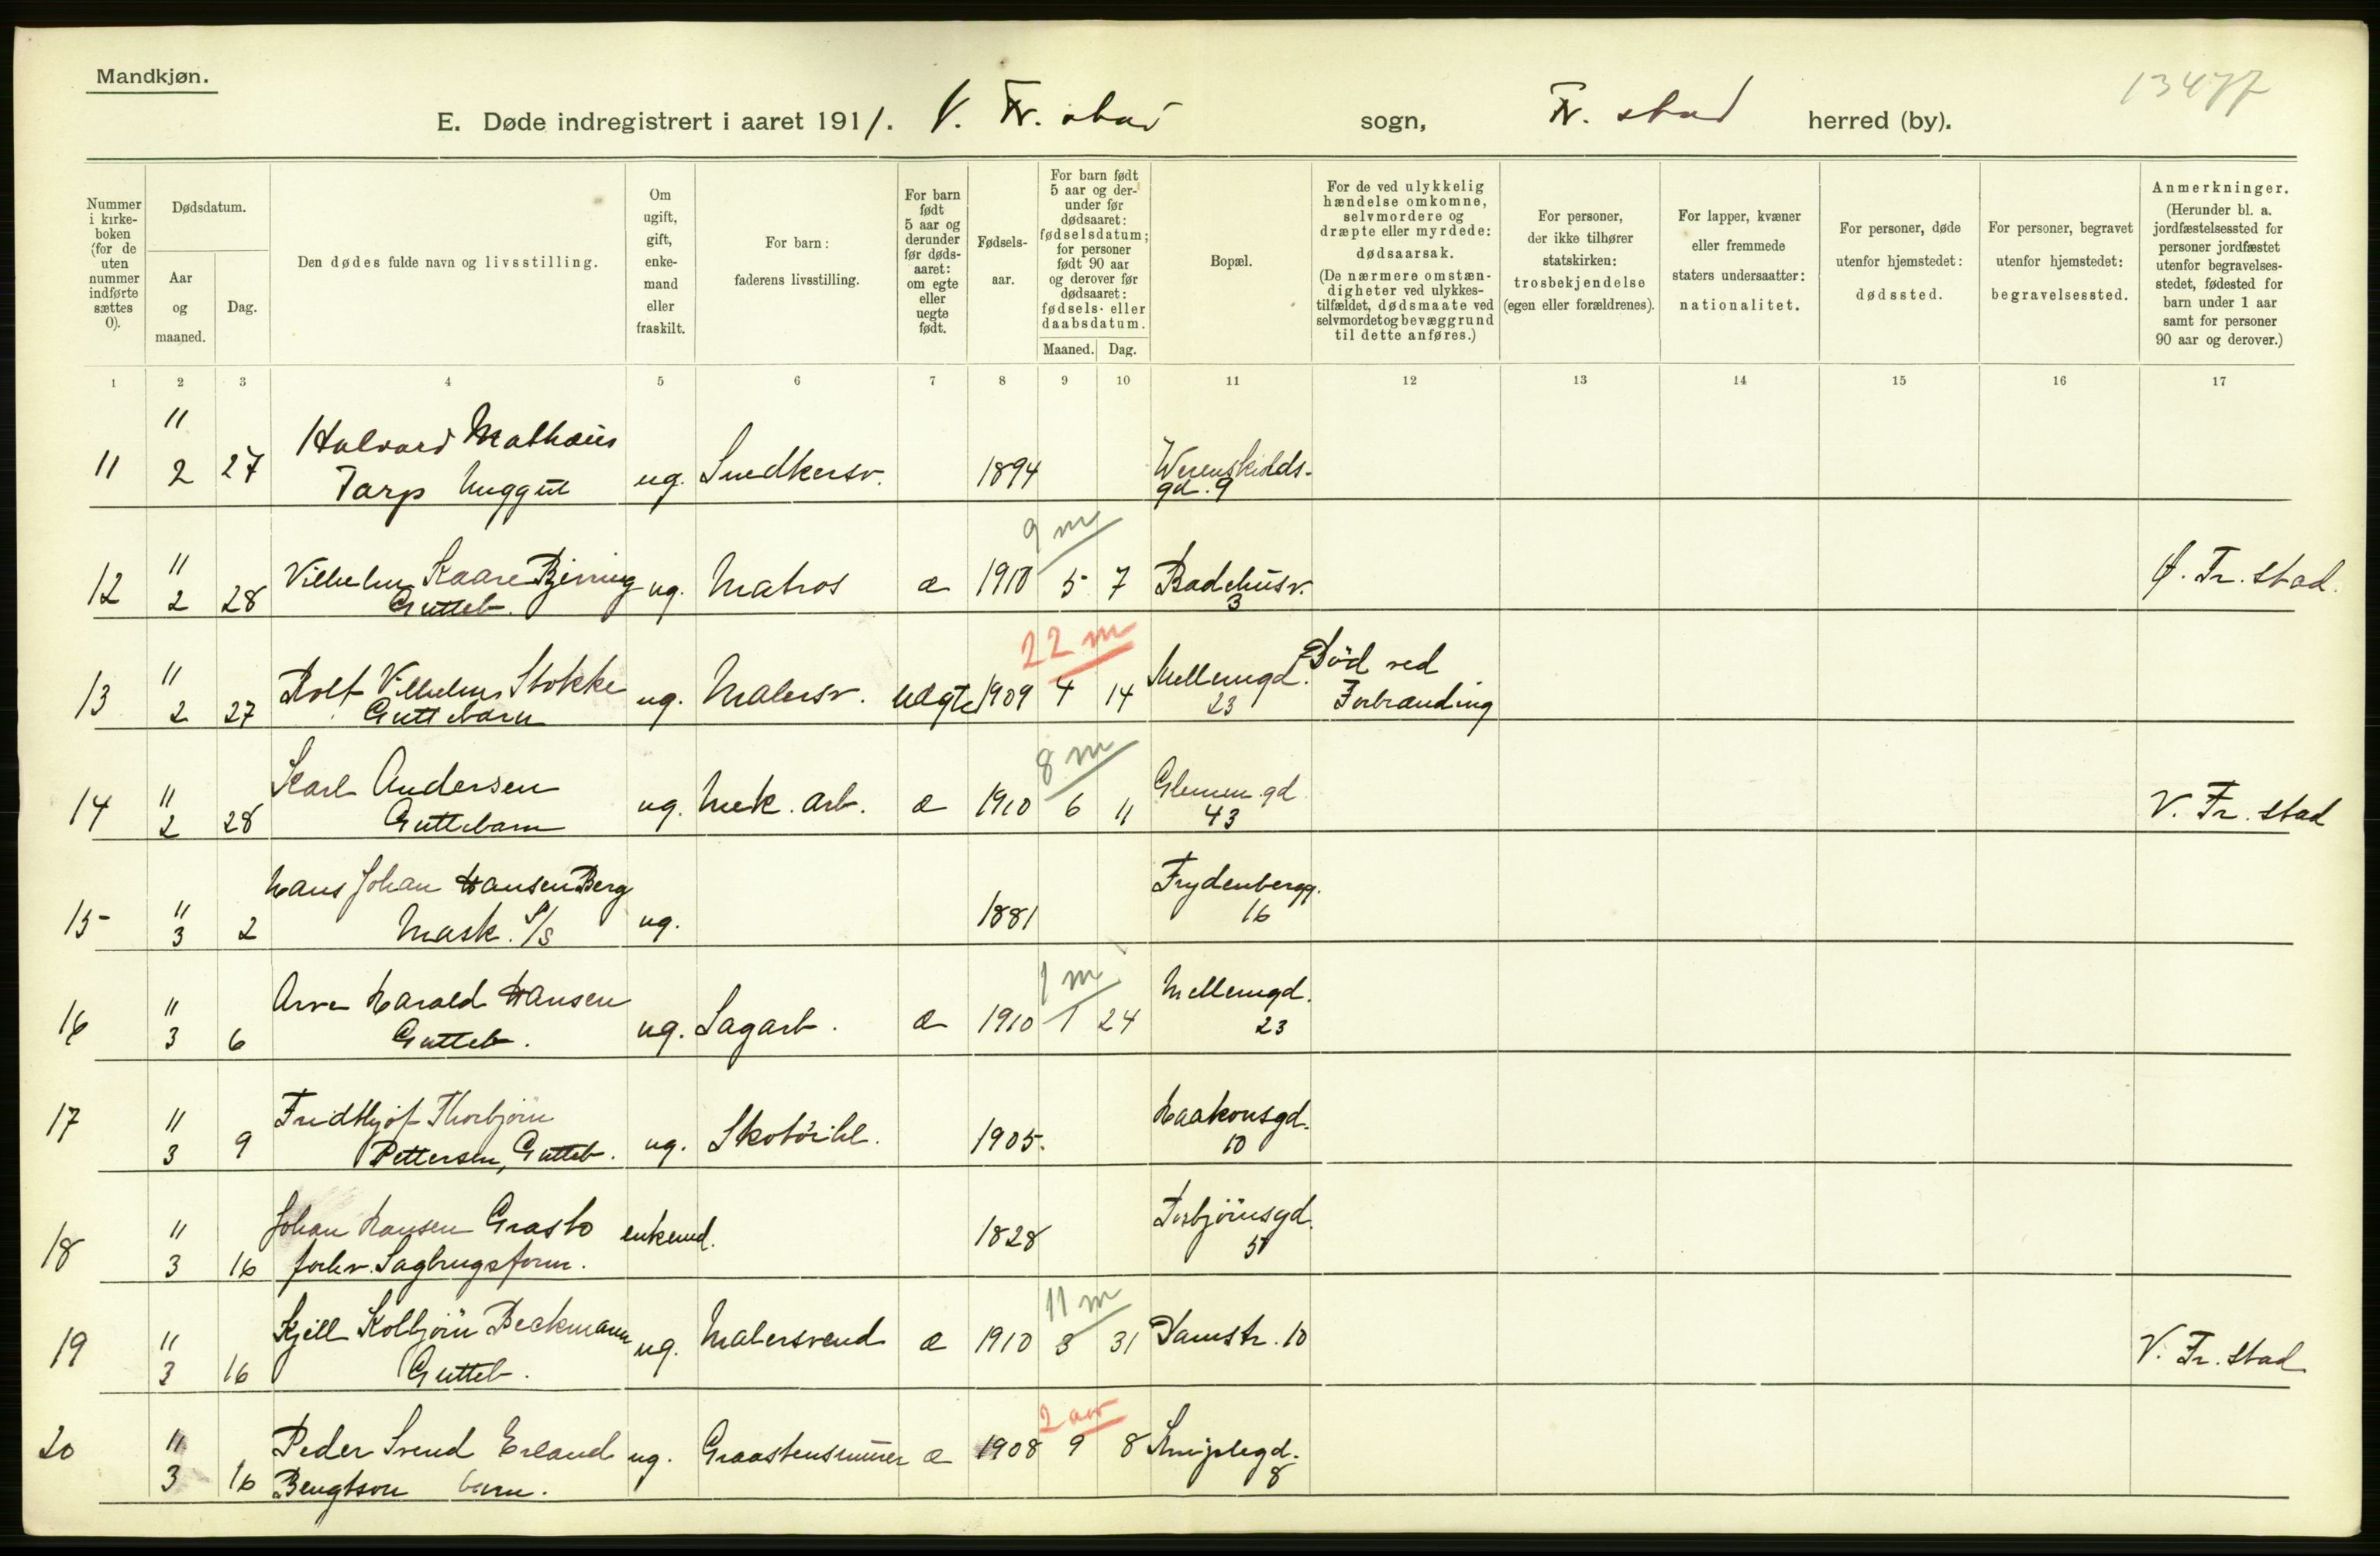 Mandkjøn.
13477
E. Døde indregistrert i aaret 1911. V. Fr.stad sogn, Fr. stad herred (by).
Nummer i kirke- boken (for de uten nummer indførte sættes 0).
Dødsdatum.
Aar og maaned.
Dag.
Den dødes fulde navn og livsstilling.
Om ugift, gift, enke- mand eller fraskilt.
For barn: faderens livsstilling.
For barn født 5 aar og derunder før døds- aaret: om egte eller uegte født.
Fødsels- aar.
For barn født 5 aar og der- under før dødsaaret: fødselsdatum; for personer født 90 aar og derover før dødsaaret: fødsels- eller daabsdatum.
Maaned. Dag.
Bopæl.
For de ved ulykkelig hændelse omkomne, selvmordere og dræpte eller myrdede: dødsaarsak. (De nærmere omstæn- digheter ved ulykkes- tilfældet, dødsmaate ved selvmordet og bevæggrund til dette anføres.)
For personer, der ikke tilhører statskirken: trosbekjendelse (egen eller forældrenes).
For lapper, kvæner eller fremmede staters undersaatter: nationalitet.
For personer, døde utenfor hjemstedet: dødssted.
For personer, begravet utenfor hjemstedet: begravelsessted.
Anmerkninger. (Herunder bl. a. jordfæstelsessted for personer jordfæstet utenfor begravelses- stedet, fødested for barn under 1 aar samt for personer 90 aar og derover.)
1 2 3 4 5 6 7 8 9 10 11 12 13 14 15 16 17
11 11 2 27 Halvard Mathæus Tarp ug. Snedkersv. 1894 Werenskiolds- gd. 9
9 m
12 11 2 28 Vilhelm Kaare Bjerring Gutteb. ug. Matros æ 1910 5 7 Badehusv. 3 Ø. Fr. stad.
22 m
13 11 2 27 Rolf Vilhelm Stokke Guttebarn ug. Malersv. uægte 1909 4 14 Mellemgd. 23 Död ved Forbranding
8 m
14 11 2 28 Karl Andersen Guttebarn ug. Mek. arb. æ 1910 6 11 Glemmengd 43 V. Fr. stad
15 11 3 2 Hans Johan Hansen Berg Mask. S/S ug. 1881 Frydenbergg. 16
1 m
16 11 3 6 Arve Harald Hansen Gutteb. ug. Sagarb. æ 1910 1 24 Mellemgd. 23
17 11 3 9 Fridthjof Thorbjörn Pettersen, Gutteb. ug. Skotöihl. 1905. Haakonsgd. 10
18 11 3 16 Johan Hansen Grasto forhv. Sagbrugsform. enkemd. 1828 Torbjörnsgd. 5
11 m
19 11 3 16 Kjell Kolbjörn Beckmann Gutteb. ug. Malersvend æ 1910 3 31 Damstr. 10 V. Fr. stad
2 aar
20 11 3 16 Peder Svend Erland Bengtson barn. ug. æ 1908 9 8 Kniplegd. 8